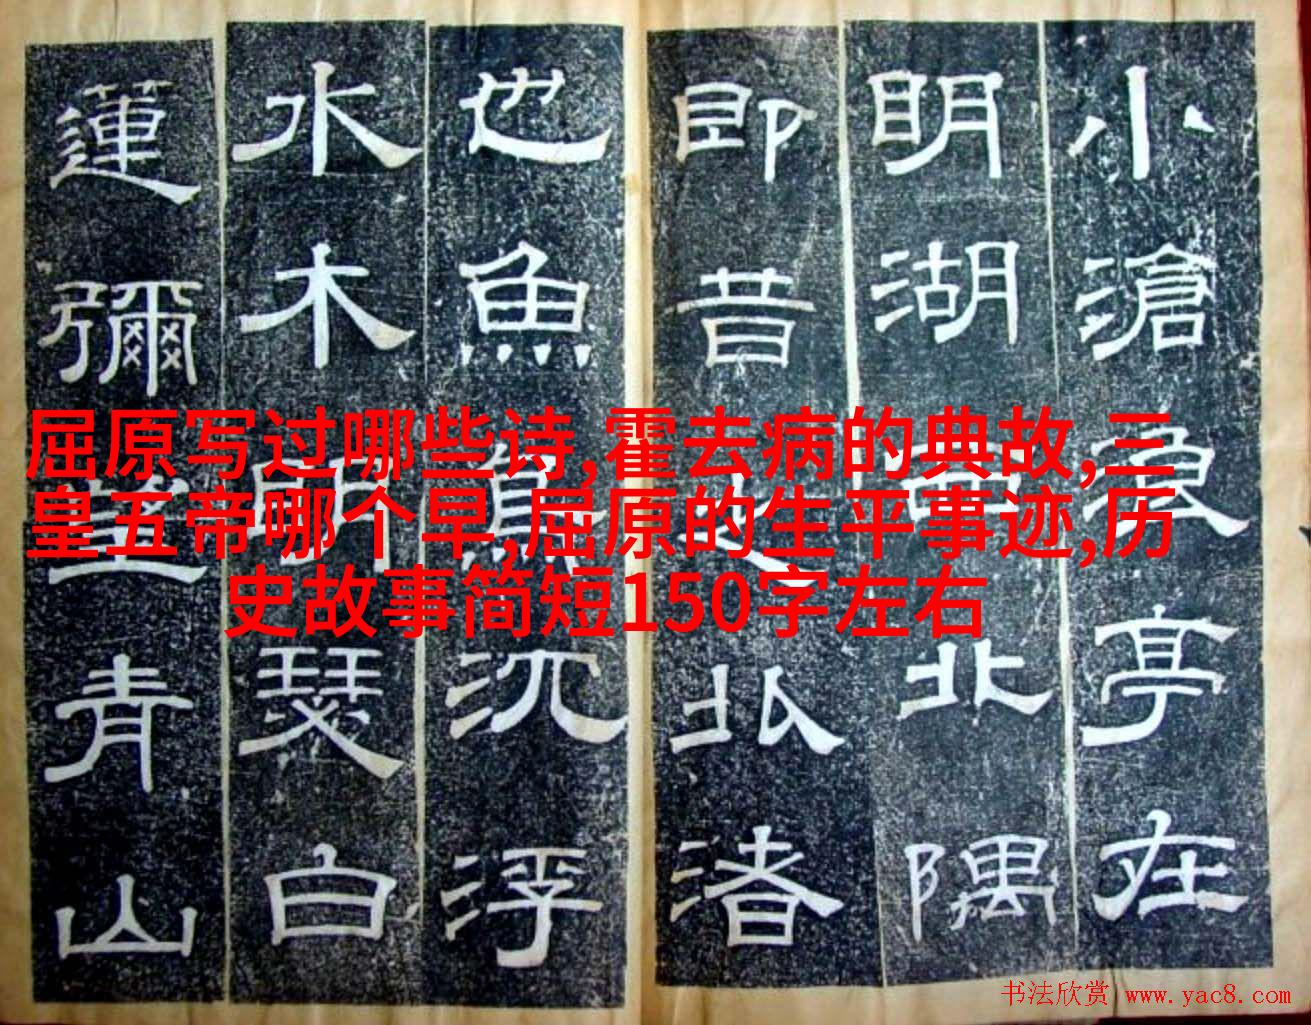 小滄浪亭在
明湖西北隅
即昔之北渚
也魚鳥沉浮
水木明瑟白
蓮彌望青山
屈原写过哪些诗,霍去病的典故,三
皇五帝哪个早,屈原的生平事迹,历
史故事简短150字左右
书法欣赏 www.yac8.com